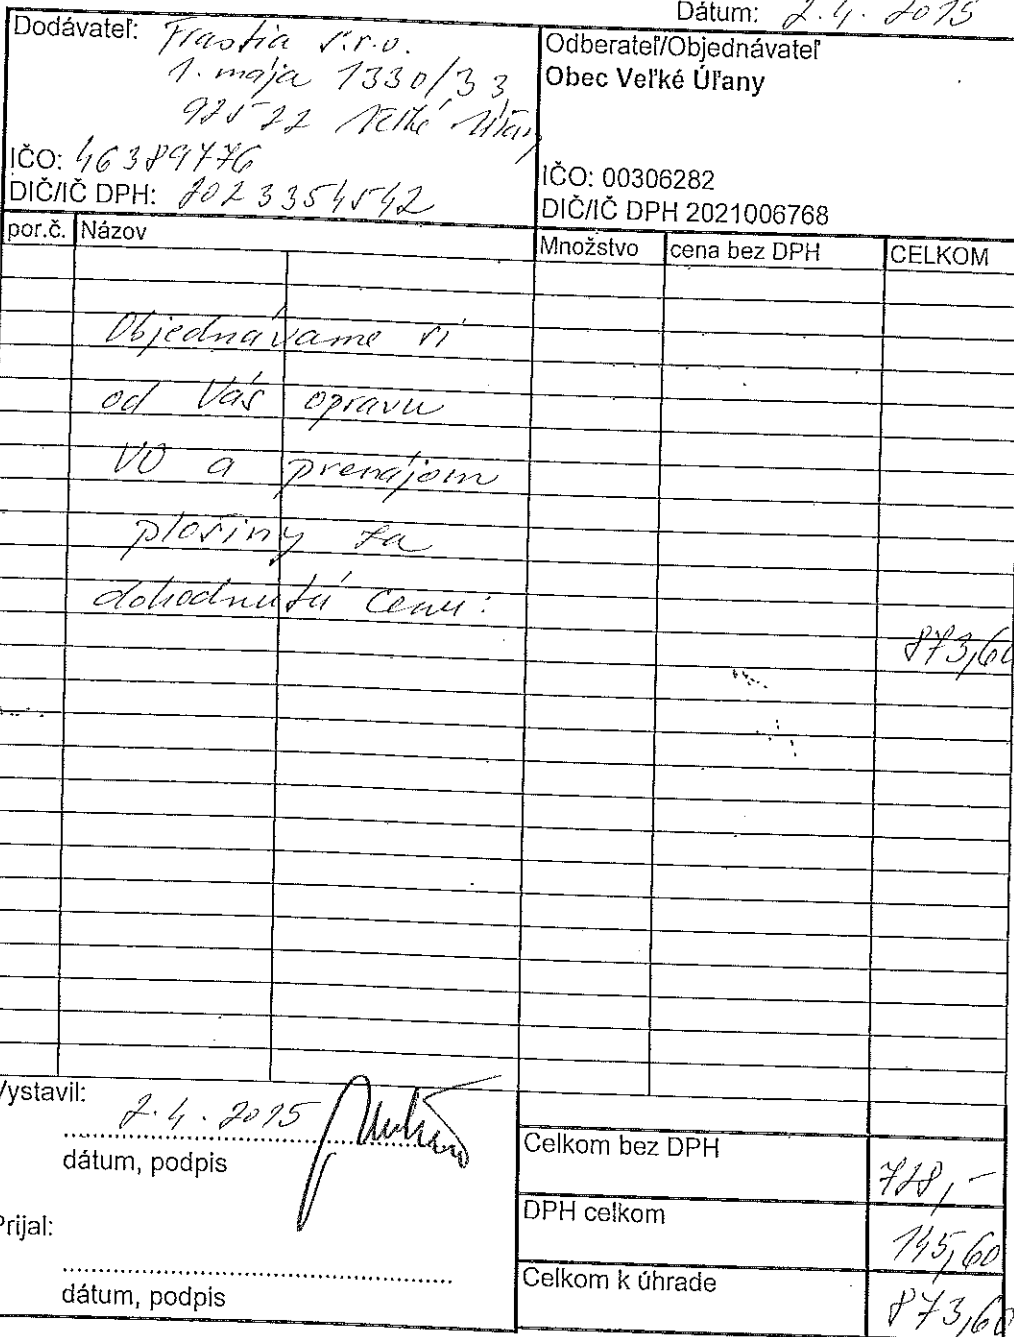 Dátum: 2.4. 2015
Dodávateľ: Frastia s.r.o.
1. mája 1330/33
925 22 Veľké Úľany
IČO: 46389476
DIČ/IČ DPH: 2023354542
Odberateľ/Objednávateľ
Obec Veľké Úľany
IČO: 00306282
DIČ/IČ DPH 2021006768
por.č. Názov Množstvo cena bez DPH CELKOM
Objednávame si
od Vás opravu
VO a prenájom
plošiny za
dohodnutú cenu:
873,60
Vystavil: 2.4. 2015
dátum, podpis
Prijal:
dátum, podpis
Celkom bez DPH 728,-
DPH celkom 145,60
Celkom k úhrade 873,60